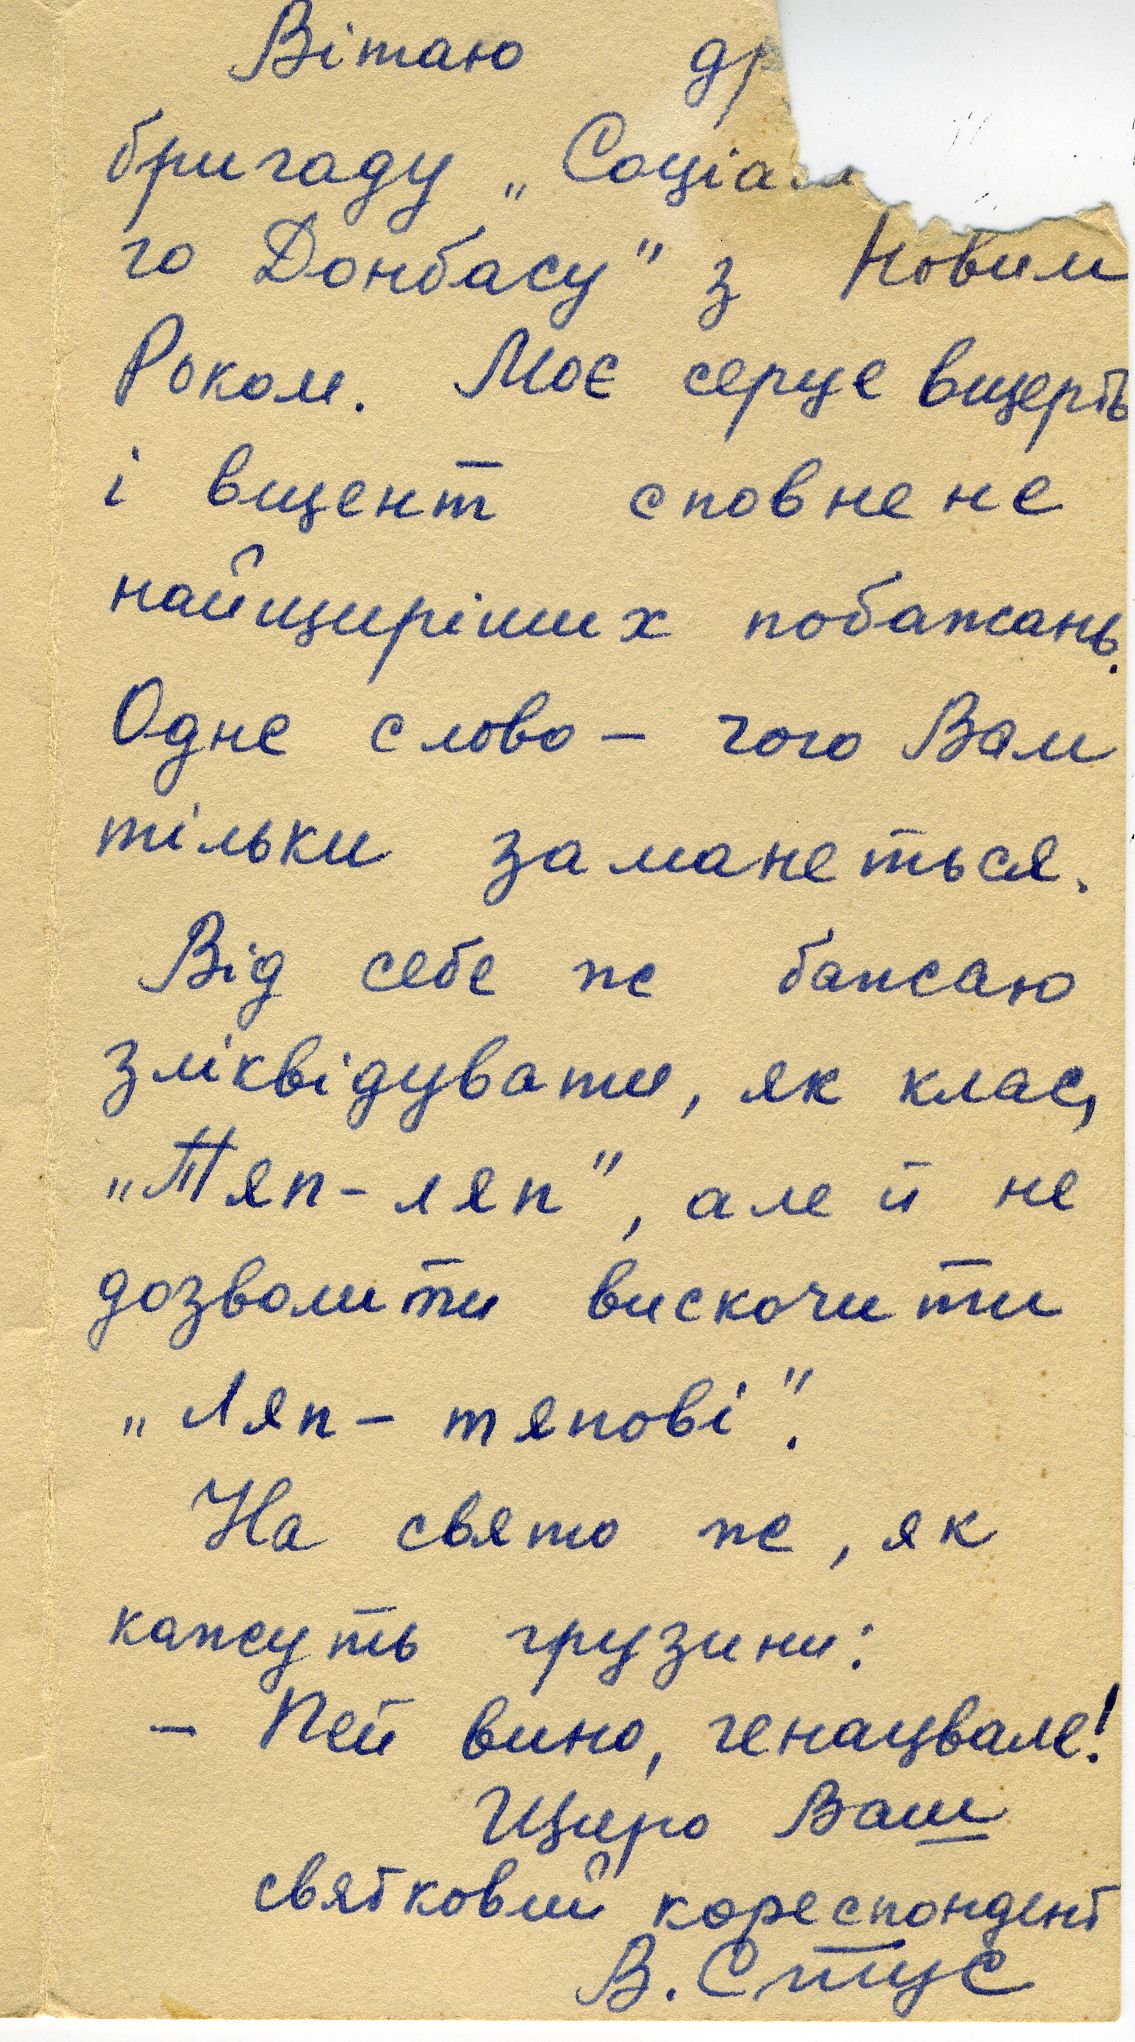 Вітаю др
бригаду „Соціал
го Донбасу" з Новим
Роком. Моє серце вщерть
і вщент сповнене
найщиріших побажань.
Одне слово – чого Вам
тільки заманеться.
Від себе же бажаю
зліквідувати, як клас,
„Тяп-ляп", але й не
дозволити вискочити
„Ляп-тяпові".
На свято же, як
кажуть грузини:
– Пей вино, генацвале!
Щиро Ваш
святковий кореспондент
В. Стус